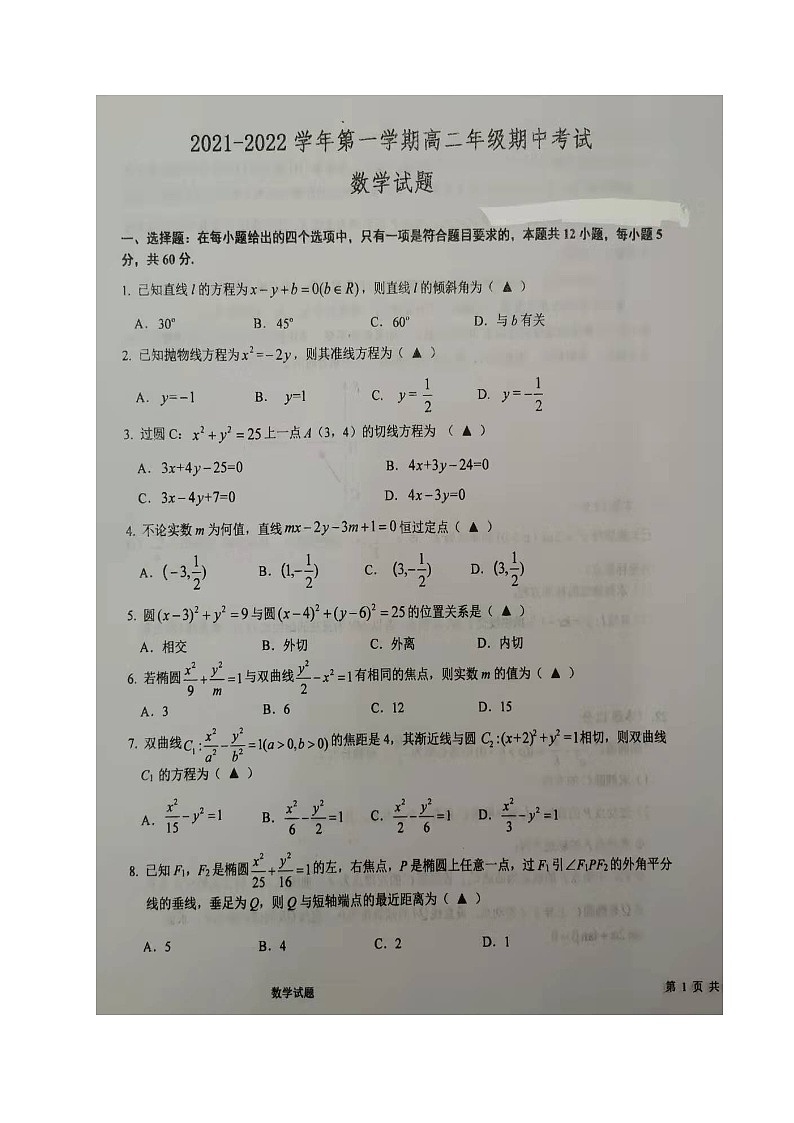 2021-2022 学年第一学期高二年级期中考试
数学试题
一、选择题：在每小题给出的四个选项中，只有一项是符合题目要求的，本题共 12 小题，每小题 5
分，共 60 分.
1. 已知直线 l 的方程为 x − y + b = 0(b ∈ R)，则直线 l 的倾斜角为（ ▲ ）
A. 30° B. 45° C. 60° D. 与 b 有关
2. 已知抛物线方程为 x² = −2y，则其准线方程为（ ▲ ）
A. y=−1 B. y=1 C. y = 1/2 D. y = −1/2
3. 过圆 C：x² + y² = 25 上一点 A（3，4）的切线方程为 （ ▲ ）
A. 3x+4y−25=0 B. 4x+3y−24=0
C. 3x−4y+7=0 D. 4x−3y=0
4. 不论实数 m 为何值，直线 mx − 2y − 3m + 1 = 0 恒过定点（ ▲ ）
A. (−3, 1/2) B. (1, −1/2) C. (3, −1/2) D. (3, 1/2)
5. 圆 (x−3)² + y² = 9 与圆 (x−4)² + (y−6)² = 25 的位置关系是（ ▲ ）
A. 相交 B. 外切 C. 外离 D. 内切
6. 若椭圆 x²/9 + y²/m = 1 与双曲线 y²/2 − x² = 1 有相同的焦点，则实数 m 的值为（ ▲ ）
A. 3 B. 6 C. 12 D. 15
7. 双曲线 C₁: x²/a² − y²/b² = 1(a > 0, b > 0) 的焦距是 4，其渐近线与圆 C₂:(x+2)² + y² = 1 相切，则双曲线
C₁ 的方程为（ ▲ ）
A. x²/15 − y² = 1 B. x²/6 − y²/2 = 1 C. x²/2 − y²/6 = 1 D. x²/3 − y² = 1
8. 已知 F₁，F₂ 是椭圆 x²/25 + y²/16 = 1 的左，右焦点，P 是椭圆上任意一点，过 F₁ 引 ∠F₁PF₂ 的外角平分
线的垂线，垂足为 Q，则 Q 与短轴端点的最近距离为（ ▲ ）
A. 5 B. 4 C. 2 D. 1
数学试题 第 1 页 共